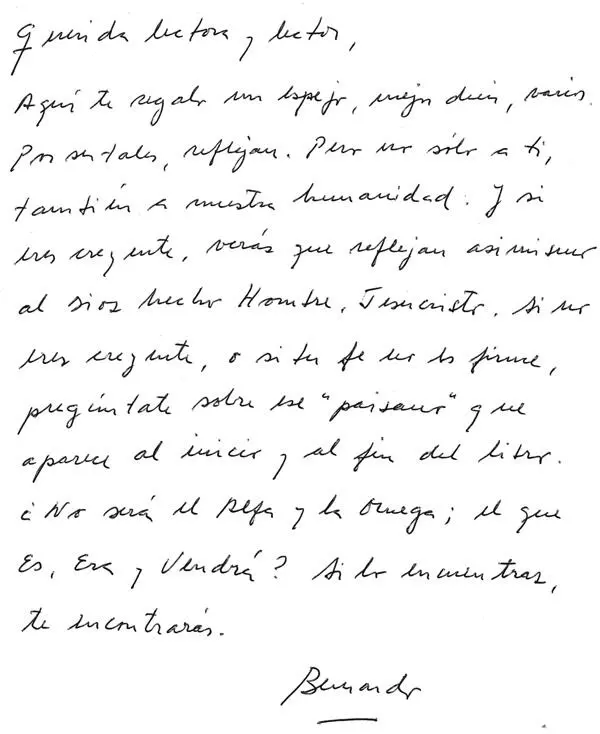 Querida lectora y lector,
Aquí te regalo un espejo, mejor dicho, varios.
Por ser tales, reflejan. Pero no sólo a ti,
también a nuestra humanidad. Y si
eres creyente, verás que reflejan asimismo
al Dios hecho Hombre, Jesucristo. Si no
eres creyente, o si tu fe no es firme,
pregúntate sobre ese "paisano" que
aparece al inicio y al fin del libro.
¿No será el Alfa y la Omega; el que
Es, Era y Vendrá? Si lo encuentras,
te encontrarás.
Bernardo